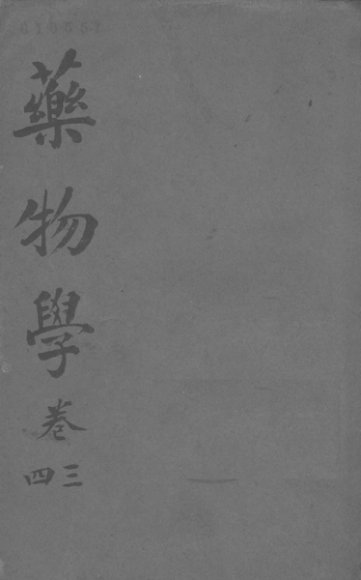 藥物學
卷三四